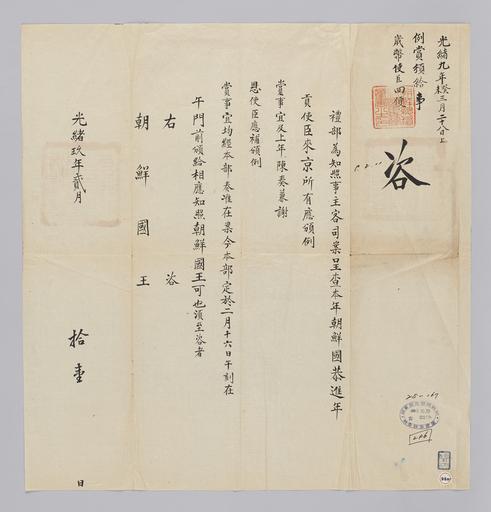 光緒九年癸未三月二十八日上
例賞頒給事
歲幣使臣回便
咨
禮部 為知照事主客司案呈查本年朝鮮國恭進年
貢使臣來京所有應頒例
賞事宜及上年陳奏兼謝
恩使臣應補頒例
賞事宜均經本部 奏准在案今本部定於二月十六日午刻在
午門前頒給相應知照朝鮮國王可也須至咨者
右 咨
朝鮮國王
光緒玖年貳月 拾壹 日